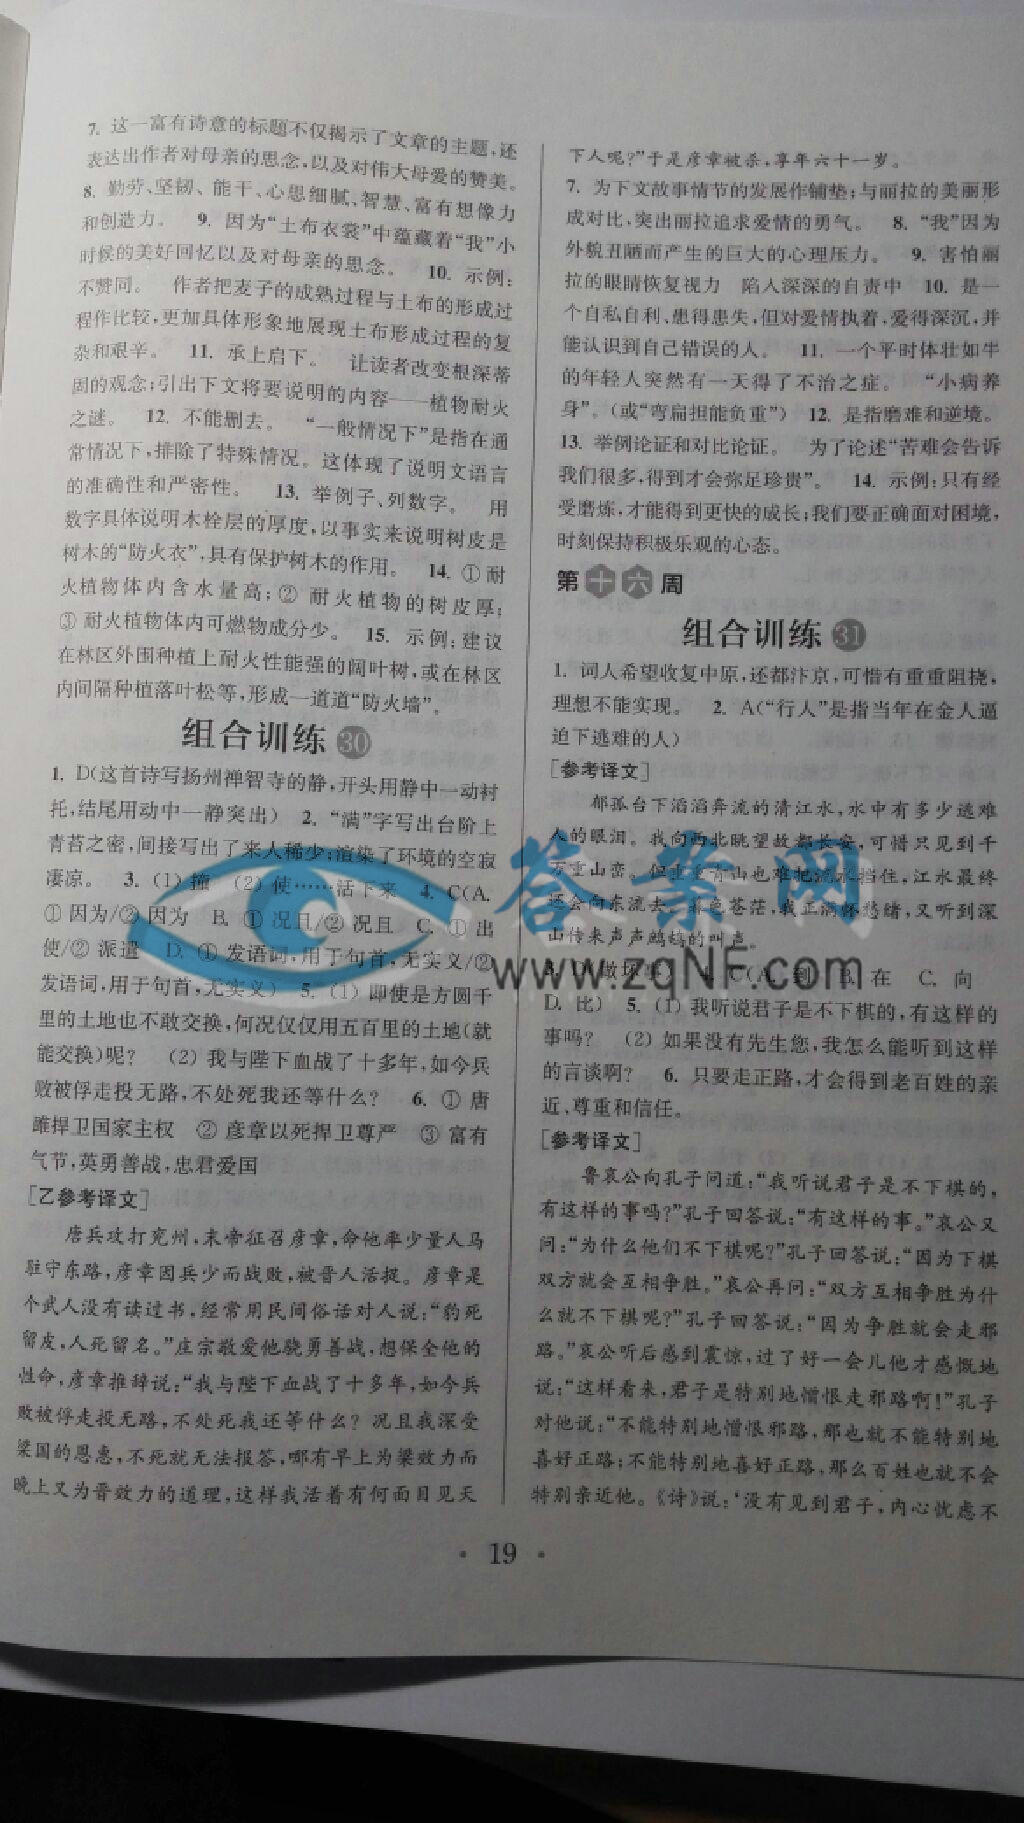 7. 这一富有诗意的标题不仅揭示了文章的主题,还
表达出作者对母亲的思念,以及对伟大母爱的赞美。
8. 勤劳、坚韧、能干、心思细腻、智慧、富有想像力
和创造力。 9. 因为“土布衣裳”中蕴藏着“我”小
时候的美好回忆以及对母亲的思念。 10. 示例:
不赞同。 作者把麦子的成熟过程与土布的形成过
程作比较,更加具体形象地展现土布形成过程的复
杂和艰辛。 11. 承上启下。 让读者改变根深蒂
固的观念;引出下文将要说明的内容——植物耐火
之谜。 12. 不能删去。 “一般情况下”是指在通
常情况下,排除了特殊情况。这体现了说明文语言
的准确性和严密性。 13. 举例子、列数字。 用
数字具体说明木栓层的厚度,以事实来说明树皮是
树木的“防火衣”,具有保护树木的作用。 14. ①耐
火植物体内含水量高;② 耐火植物的树皮厚;
③ 耐火植物体内可燃物成分少。 15. 示例:建议
在林区外围种植上耐火性能强的阔叶树,或在林区
内间隔种植落叶松等,形成一道道“防火墙”。
组合训练 30
1. D(这首诗写扬州禅智寺的静,开头用静中一动衬
托,结尾用动中一静突出) 2. “满”字写出台阶上
青苔之密,间接写出了来人稀少;渲染了环境的空寂
凄凉。 3. (1) 擅 (2) 使……活下来 4. C(A.
① 因为/② 因为 B. ① 况且/② 况且 C. ① 出
使/② 派遣 D. ① 发语词,用于句首,无实义/②
发语词,用于句首,无实义) 5. (1) 即使是方圆千
里的土地也不敢交换,何况仅仅用五百里的土地(就
能交换)呢? (2) 我与陛下血战了十多年,如今兵
败被俘走投无路,不处死我还等什么? 6. ① 唐
雎捍卫国家主权 ② 彦章以死捍卫尊严 ③ 富有
气节,英勇善战,忠君爱国
[乙参考译文]
唐兵攻打兖州,末帝征召彦章,命他率少量人马
驻守东路,彦章因兵少而战败,被晋人活捉。彦章是
个武人没有读过书,经常用民间俗话对人说:“豹死
留皮,人死留名。”庄宗敬爱他骁勇善战,想保全他的
性命,彦章推辞说:“我与陛下血战了十多年,如今兵
败被俘走投无路,不处死我还等什么? 况且我深受
梁国的恩惠,不死就无法报答,哪有早上为梁效力而
晚上又为晋效力的道理,这样我活着有何面目见天
下人呢?”于是彦章被杀,享年六十一岁。
7. 为下文故事情节的发展作铺垫;与丽拉的美丽形
成对比,突出丽拉追求爱情的勇气。 8. “我”因为
外貌丑陋而产生的巨大的心理压力。 9. 害怕丽
拉的眼睛恢复视力 陷入深深的自责中 10. 是一
个自私自利、患得患失,但对爱情执着,爱得深沉,并
能认识到自己错误的人。 11. 一个平时体壮如牛
的年轻人突然有一天得了不治之症。 “小病养
身”。(或“弯扁担能负重”) 12. 是指磨难和逆境。
13. 举例论证和对比论证。 为了论述“苦难会告诉
我们很多,得到才会弥足珍贵”。 14. 示例:只有经
受磨炼,才能得到更快的成长;我们要正确面对困境,
时刻保持积极乐观的心态。
第十六周
组合训练 31
1. 词人希望收复中原,还都汴京,可惜有重重阻挠,
理想不能实现。 2. A(“行人”是指当年在金人逼
迫下逃难的人)
[参考译文]
郁孤台下滔滔奔流的清江水,水中有多少逃难
人的眼泪。我向西北眺望故都长安,可惜只见到千
万重山峦。但重重青山也难把流水挡住,江水最终
还会向东流去。暮色苍茫,我正满怀愁绪,又听到深
山传来声声鹧鸪的叫声。
3. D(做坏事) 4. C(A. 到 B. 在 C. 向
D. 比) 5. (1) 我听说君子是不下棋的,有这样的
事吗? (2) 如果没有先生您,我怎么能听到这样
的言谈啊? 6. 只要走正路,才会得到老百姓的亲
近、尊重和信任。
[参考译文]
鲁哀公向孔子问道:“我听说君子是不下棋的,
有这样的事吗?”孔子回答说:“有这样的事。”哀公又
问:“为什么他们不下棋呢?”孔子回答说:“因为下棋
双方就会互相争胜。”哀公再问:“双方互相争胜为什
么就不下棋呢?”孔子回答说:“因为争胜就会走邪
路。”哀公听后感到震惊,过了好一会儿他才感慨地
说:“这样看来,君子是特别地憎恨走邪路啊!”孔子
对他说:“不能特别地憎恨邪路,那也就不能特别地
喜好正路;不能特别地喜好正路,那么百姓也就不会
特别亲近他。《诗》说:‘没有见到君子,内心忧虑不
· 19 ·
答案网
www.zqNF.com